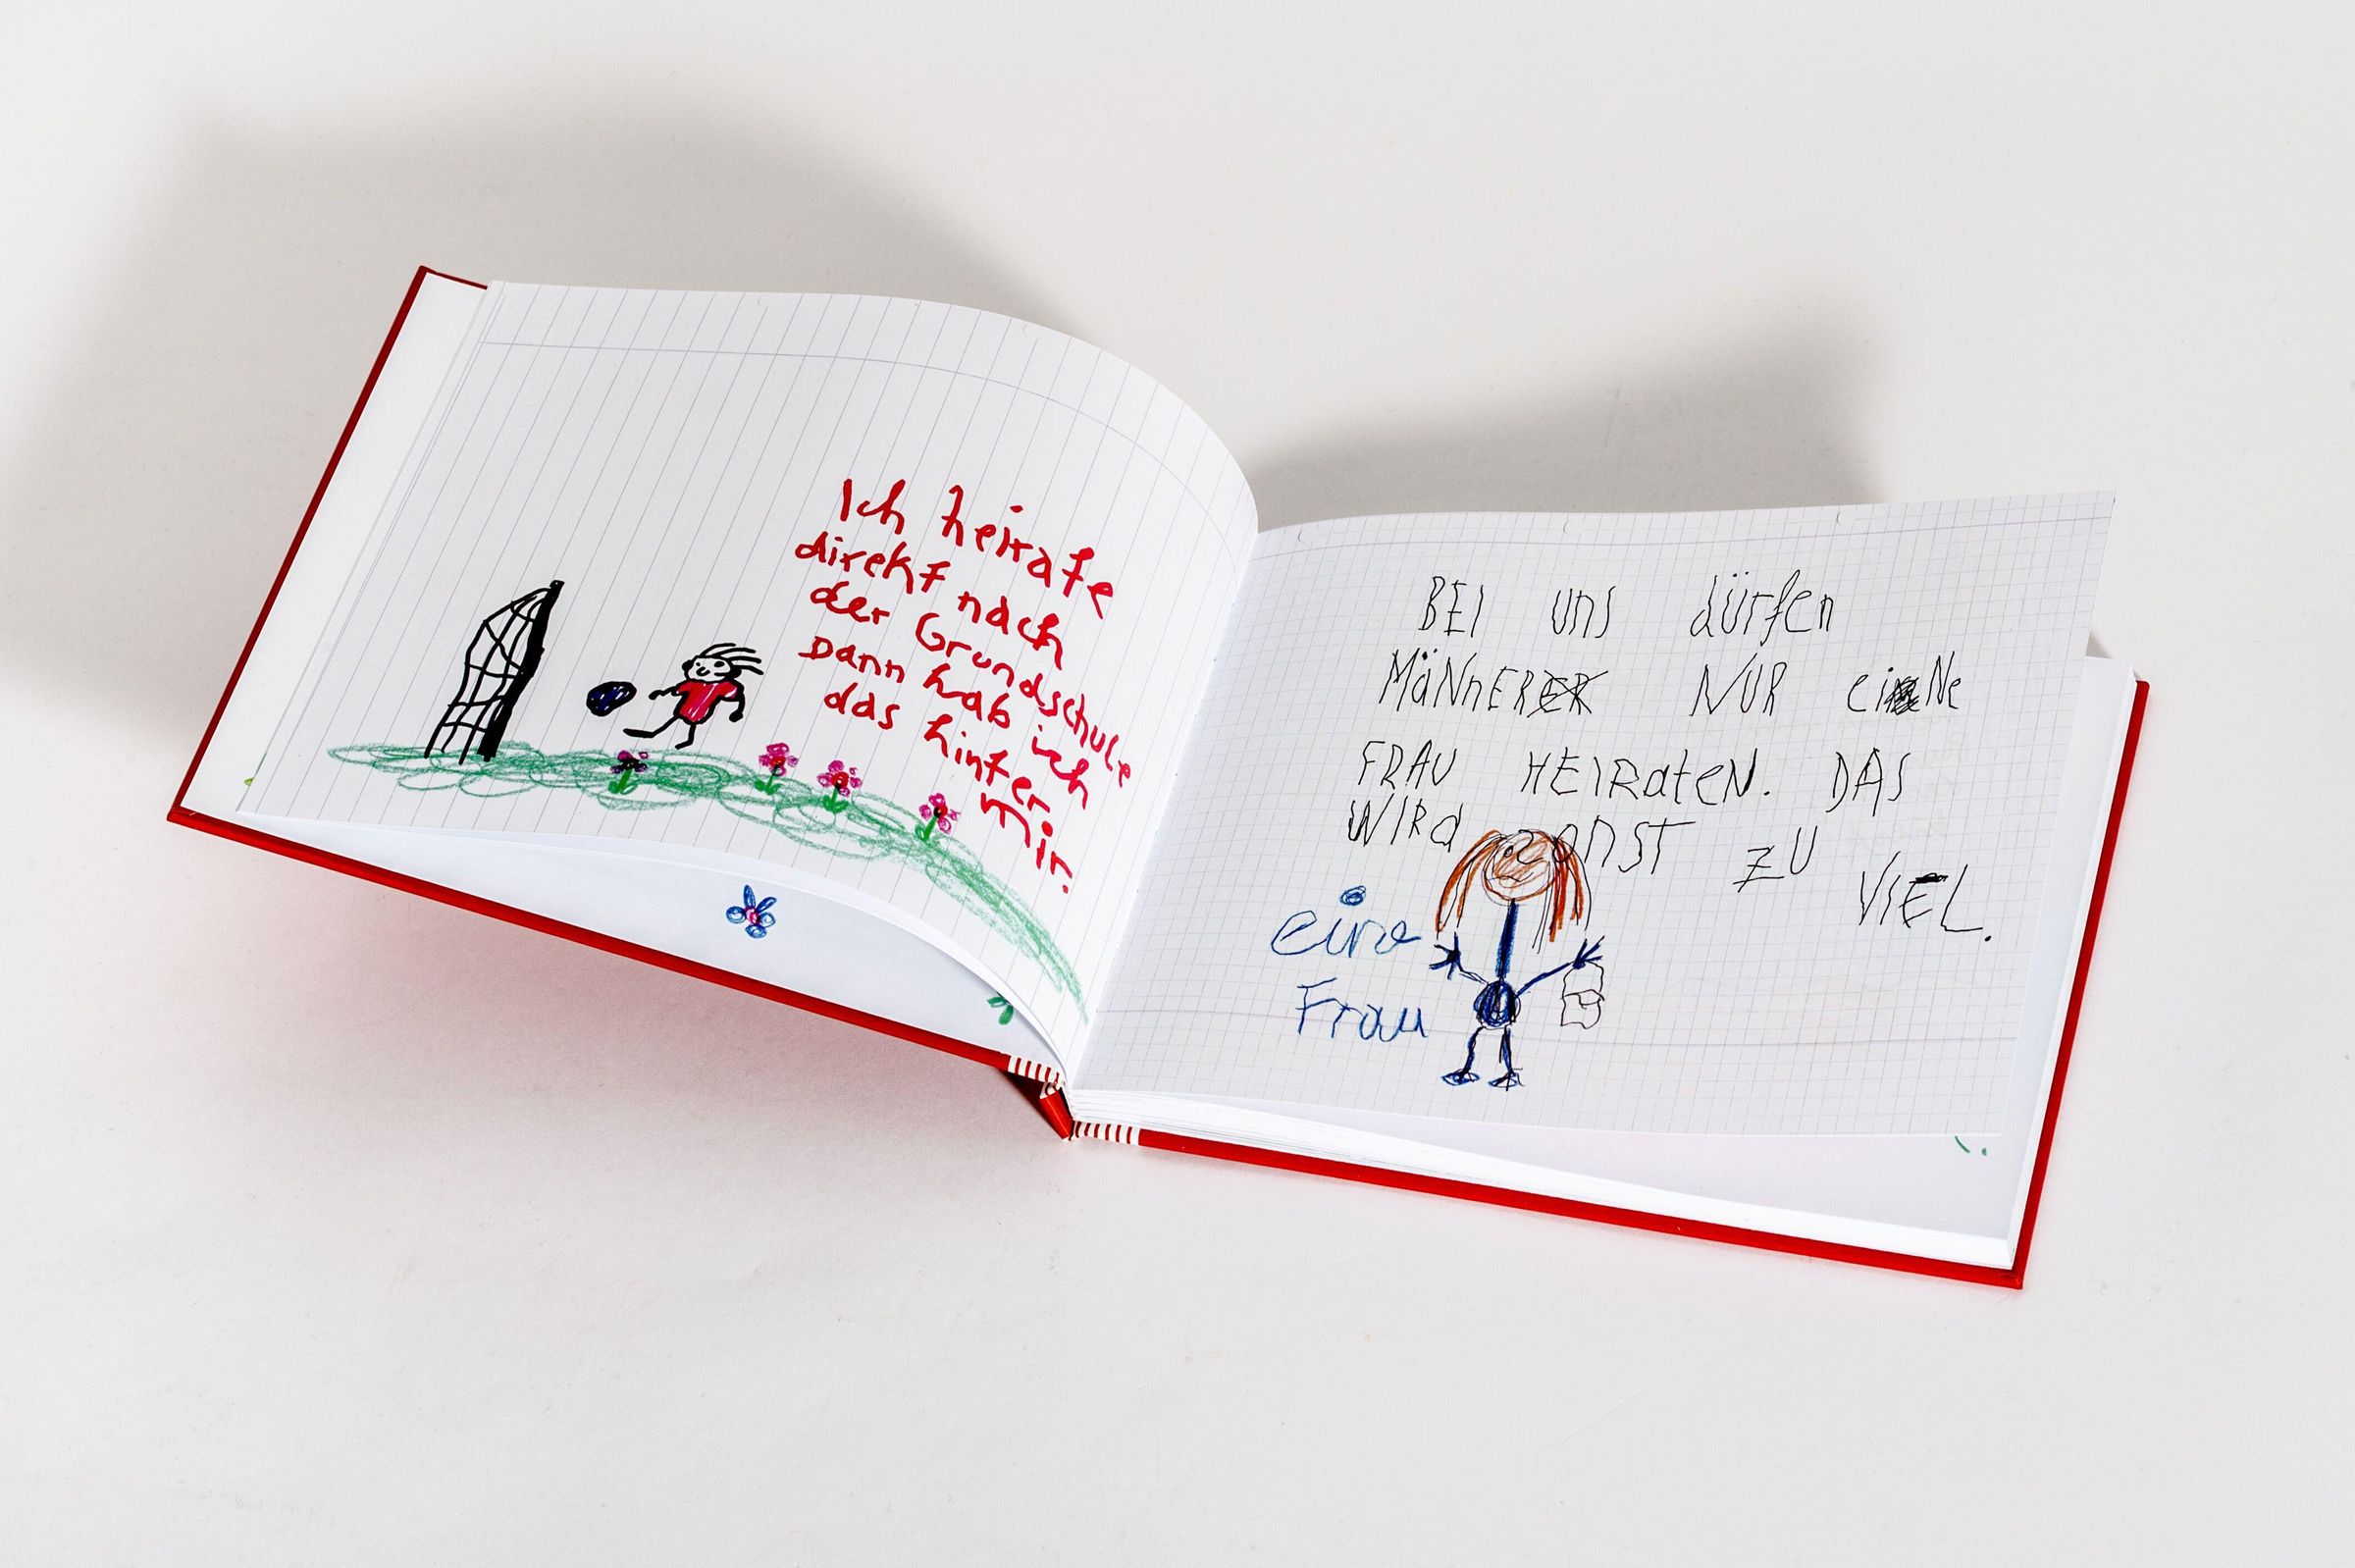 Ich heirate
direkt nach
der Grundschule
Dann hab ich
das hinter
mir.
BEI UNS dürfen
MäNnER NUR eiNe
FRAU HEIRateN. DAS
WIRd SONST ZU
VIEL.
eine
Frau